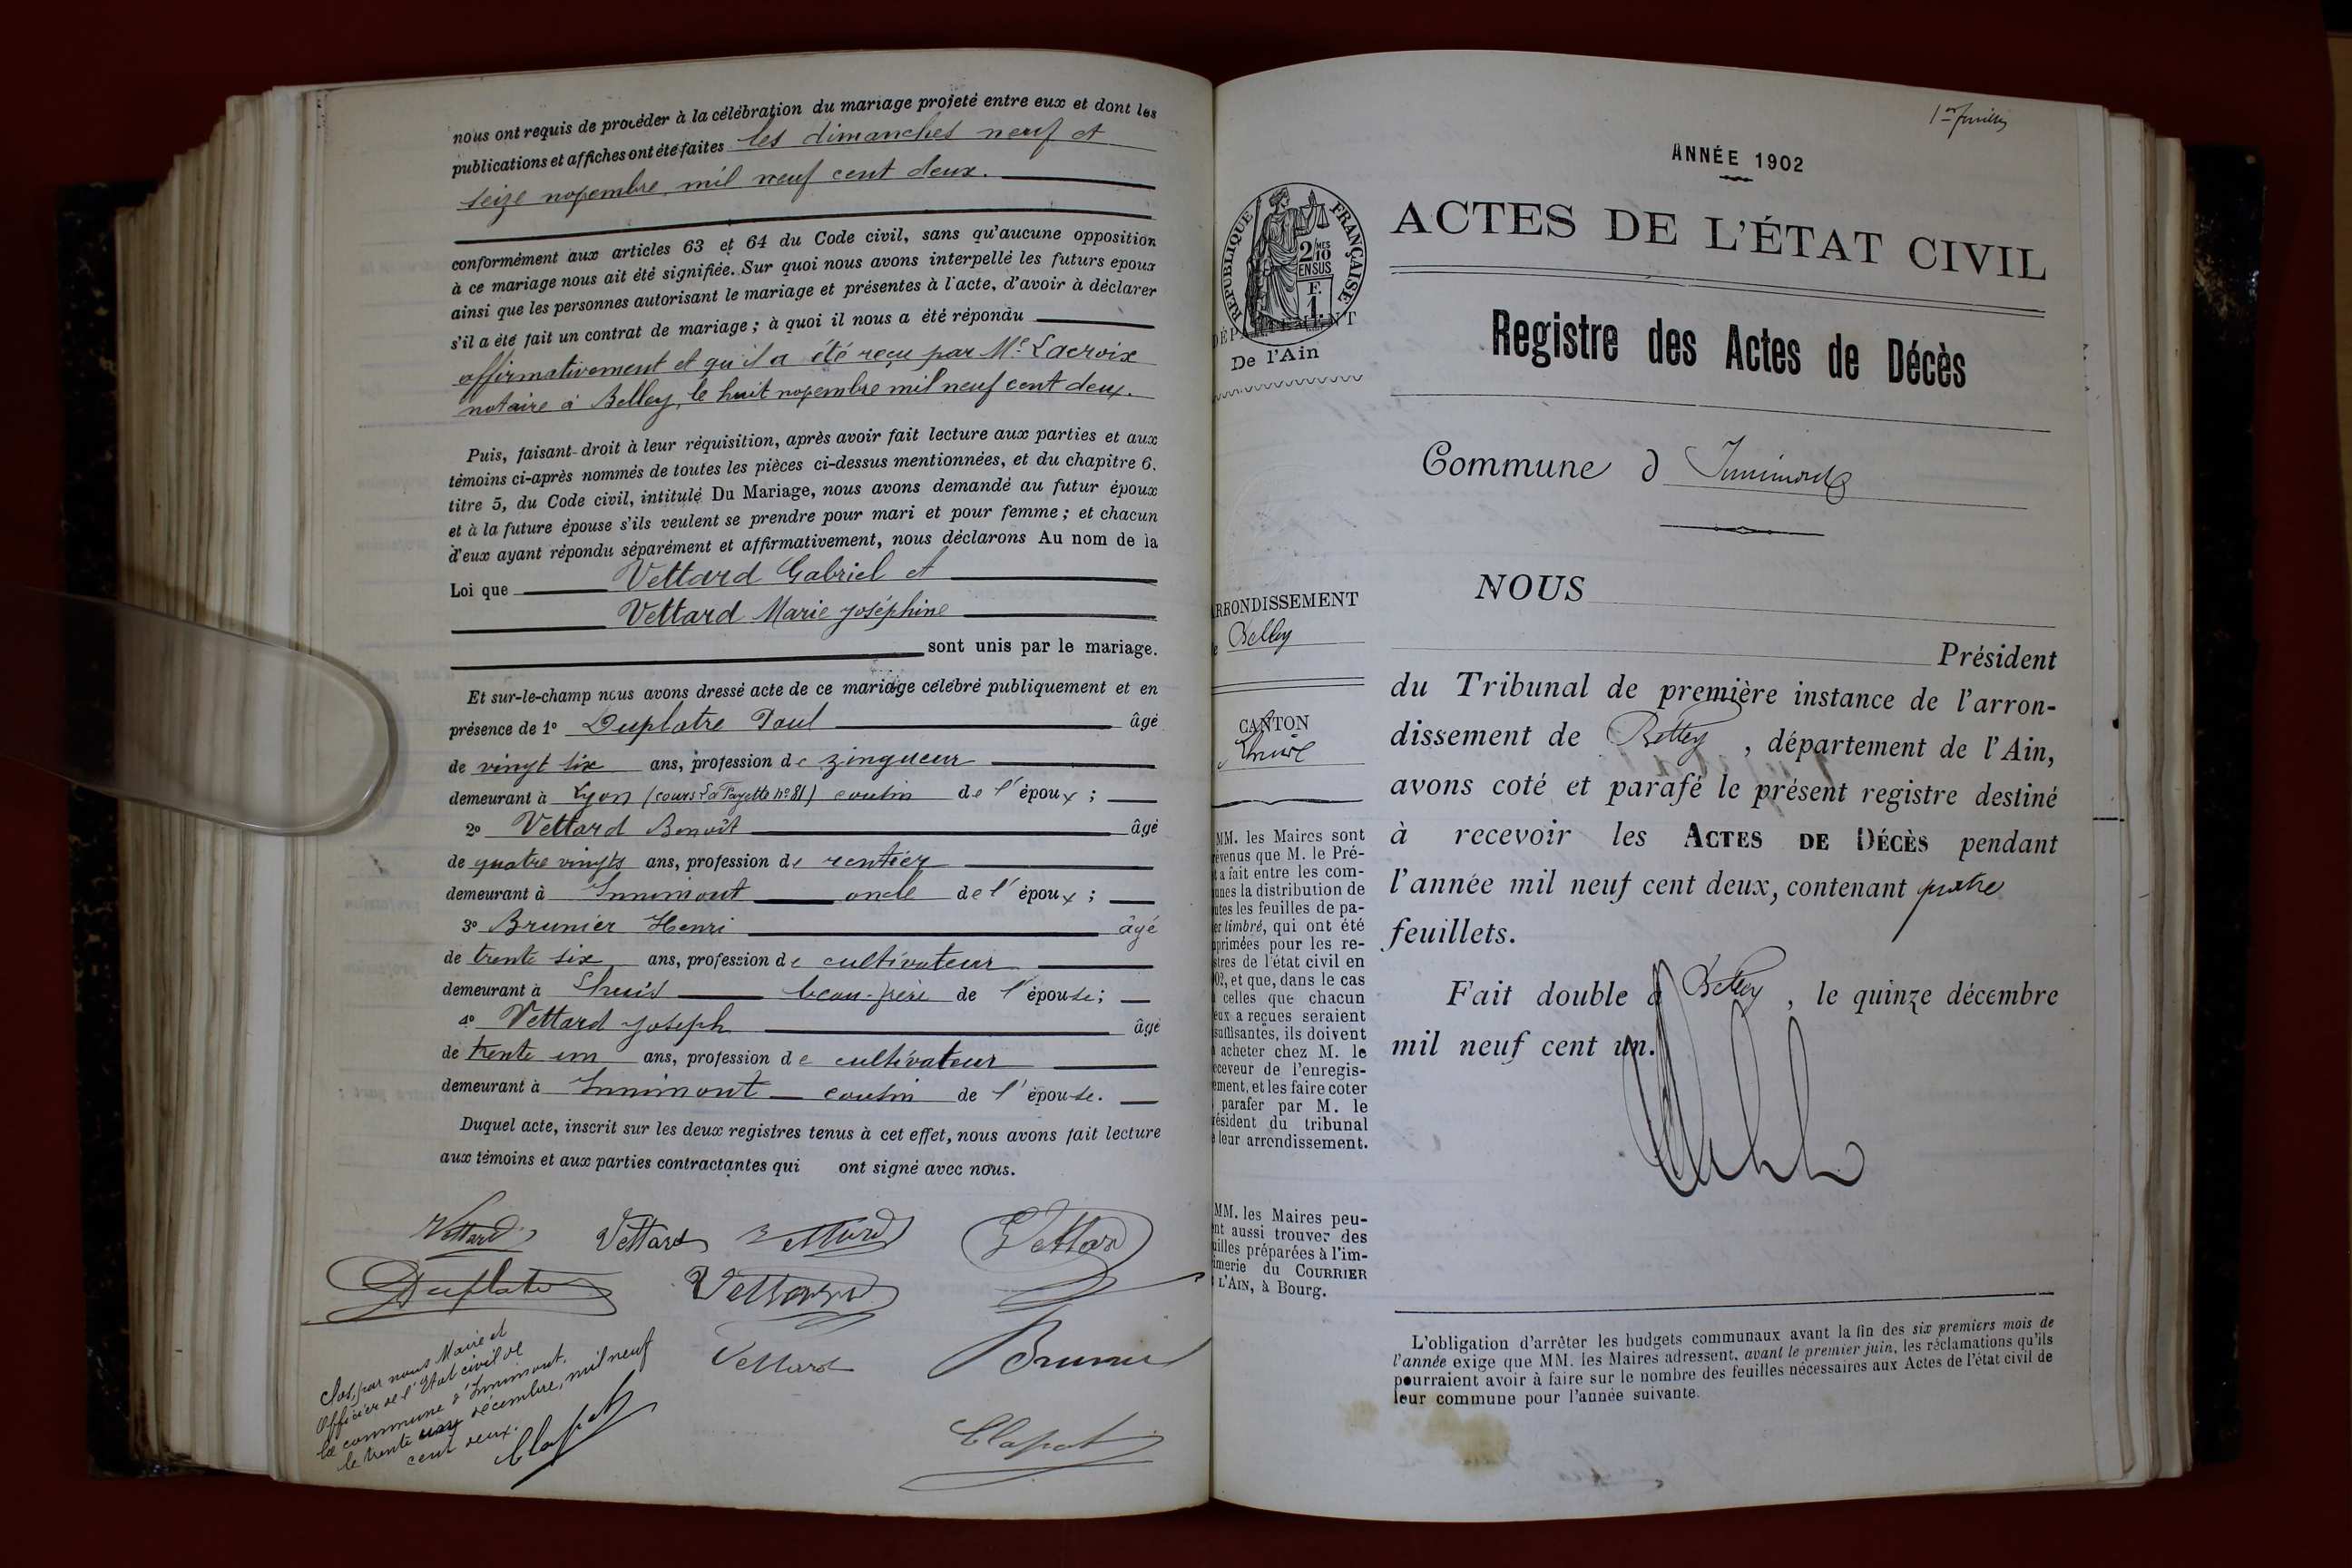 nous ont requis de procéder à la célébration du mariage projeté entre eux et dont les
publications et affiches ont été faites les dimanches neuf et
seize novembre mil neuf cent deux.
conformément aux articles 63 et 64 du Code civil, sans qu'aucune opposition
à ce mariage nous ait été signifiée. Sur quoi nous avons interpellé les futurs epoux
ainsi que les personnes autorisant le mariage et présentes à l'acte, d'avoir à déclarer
s'il a été fait un contrat de mariage; à quoi il nous a été répondu
affirmativement et qu'il a été reçu par Me Lacroix
notaire à Belley, le huit novembre mil neuf cent deux.
Puis, faisant droit à leur réquisition, après avoir fait lecture aux parties et aux
témoins ci-après nommés de toutes les pièces ci-dessus mentionnées, et du chapitre 6.
titre 5, du Code civil, intitulé Du Mariage, nous avons demandé au futur époux
et à la future épouse s'ils veulent se prendre pour mari et pour femme; et chacun
d'eux ayant répondu séparément et affirmativement, nous déclarons Au nom de la
Loi que Vettard Gabriel et
Vettard Marie Joséphine
sont unis par le mariage.
Et sur-le-champ nous avons dressé acte de ce mariage célébré publiquement et en
présence de 1º Duplatre Paul âgé
de vingt six ans, profession de zingueur
demeurant à Lyon (cours La Fayette nº 81) cousin de l'époux;
2º Vettard Benoît âgé
de quatre vingts ans, profession de rentier
demeurant à Innimont oncle de l'époux;
3º Brunier Henri âgé
de trente six ans, profession de cultivateur
demeurant à Lhuis beau-frère de l'épouse;
4º Vettard Joseph âgé
de trente un ans, profession de cultivateur
demeurant à Innimont cousin de l'épouse.
Duquel acte, inscrit sur les deux registres tenus à cet effet, nous avons fait lecture
aux témoins et aux parties contractantes qui ont signé avec nous.
Vettard Vettard Vettard Vettard
Duplatre Vettard
Vettard Brunier
Clapot
Clos par nous Maire et
Officier de l'Etat civil de
la commune d'Innimont,
le trente un décembre, mil neuf
cent deux.
Clapot
1er feuillet
ANNÉE 1902
ACTES DE L'ÉTAT CIVIL
RÉPUBLIQUE FRANÇAISE
2/10 MES
EN SUS
F.
1.
DÉPARTEMENT
De l'Ain
Registre des Actes de Décès
Commune d Innimont
ARRONDISSEMENT
Belley
CANTON
Lhuis
MM. les Maires sont
évenus que M. le Pré-
t a fait entre les com-
unes la distribution de
utes les feuilles de pa-
er timbré, qui ont été
primées pour les re-
stres de l'état civil en
02, et que, dans le cas
celles que chacun
eux a reçues seraient
suffisantes, ils doivent
acheter chez M. le
eceveur de l'enregis-
ement, et les faire coter
parafer par M. le
résident du tribunal
e leur arrondissement.
MM. les Maires peu-
nt aussi trouver des
uilles préparées à l'im-
imerie du COURRIER
L'AIN, à Bourg.
NOUS
Président
du Tribunal de première instance de l'arron-
dissement de Belley, département de l'Ain,
avons coté et parafé le présent registre destiné
à recevoir les ACTES DE DÉCÈS pendant
l'année mil neuf cent deux, contenant quatre
feuillets.
Fait double à Belley, le quinze décembre
mil neuf cent un.
L'obligation d'arrêter les budgets communaux avant la fin des six premiers mois de
l'année exige que MM. les Maires adressent, avant le premier juin, les réclamations qu'ils
pourraient avoir à faire sur le nombre des feuilles nécessaires aux Actes de l'état civil de
leur commune pour l'année suivante.